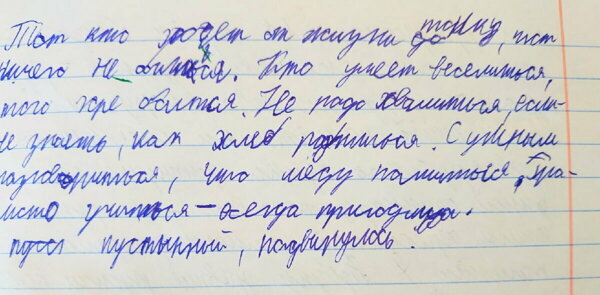 Тот кто хочет от жизни толку, тот
ничего не боится. Кто умеет веселиться,
того хре боится. Не надо хвалиться, если
не знаеть, как хлеб родиться. С умным
разговориться, что мёду напиться. Гра-
исто учиться – всегда пригодица.
пустынный, надвинулось.